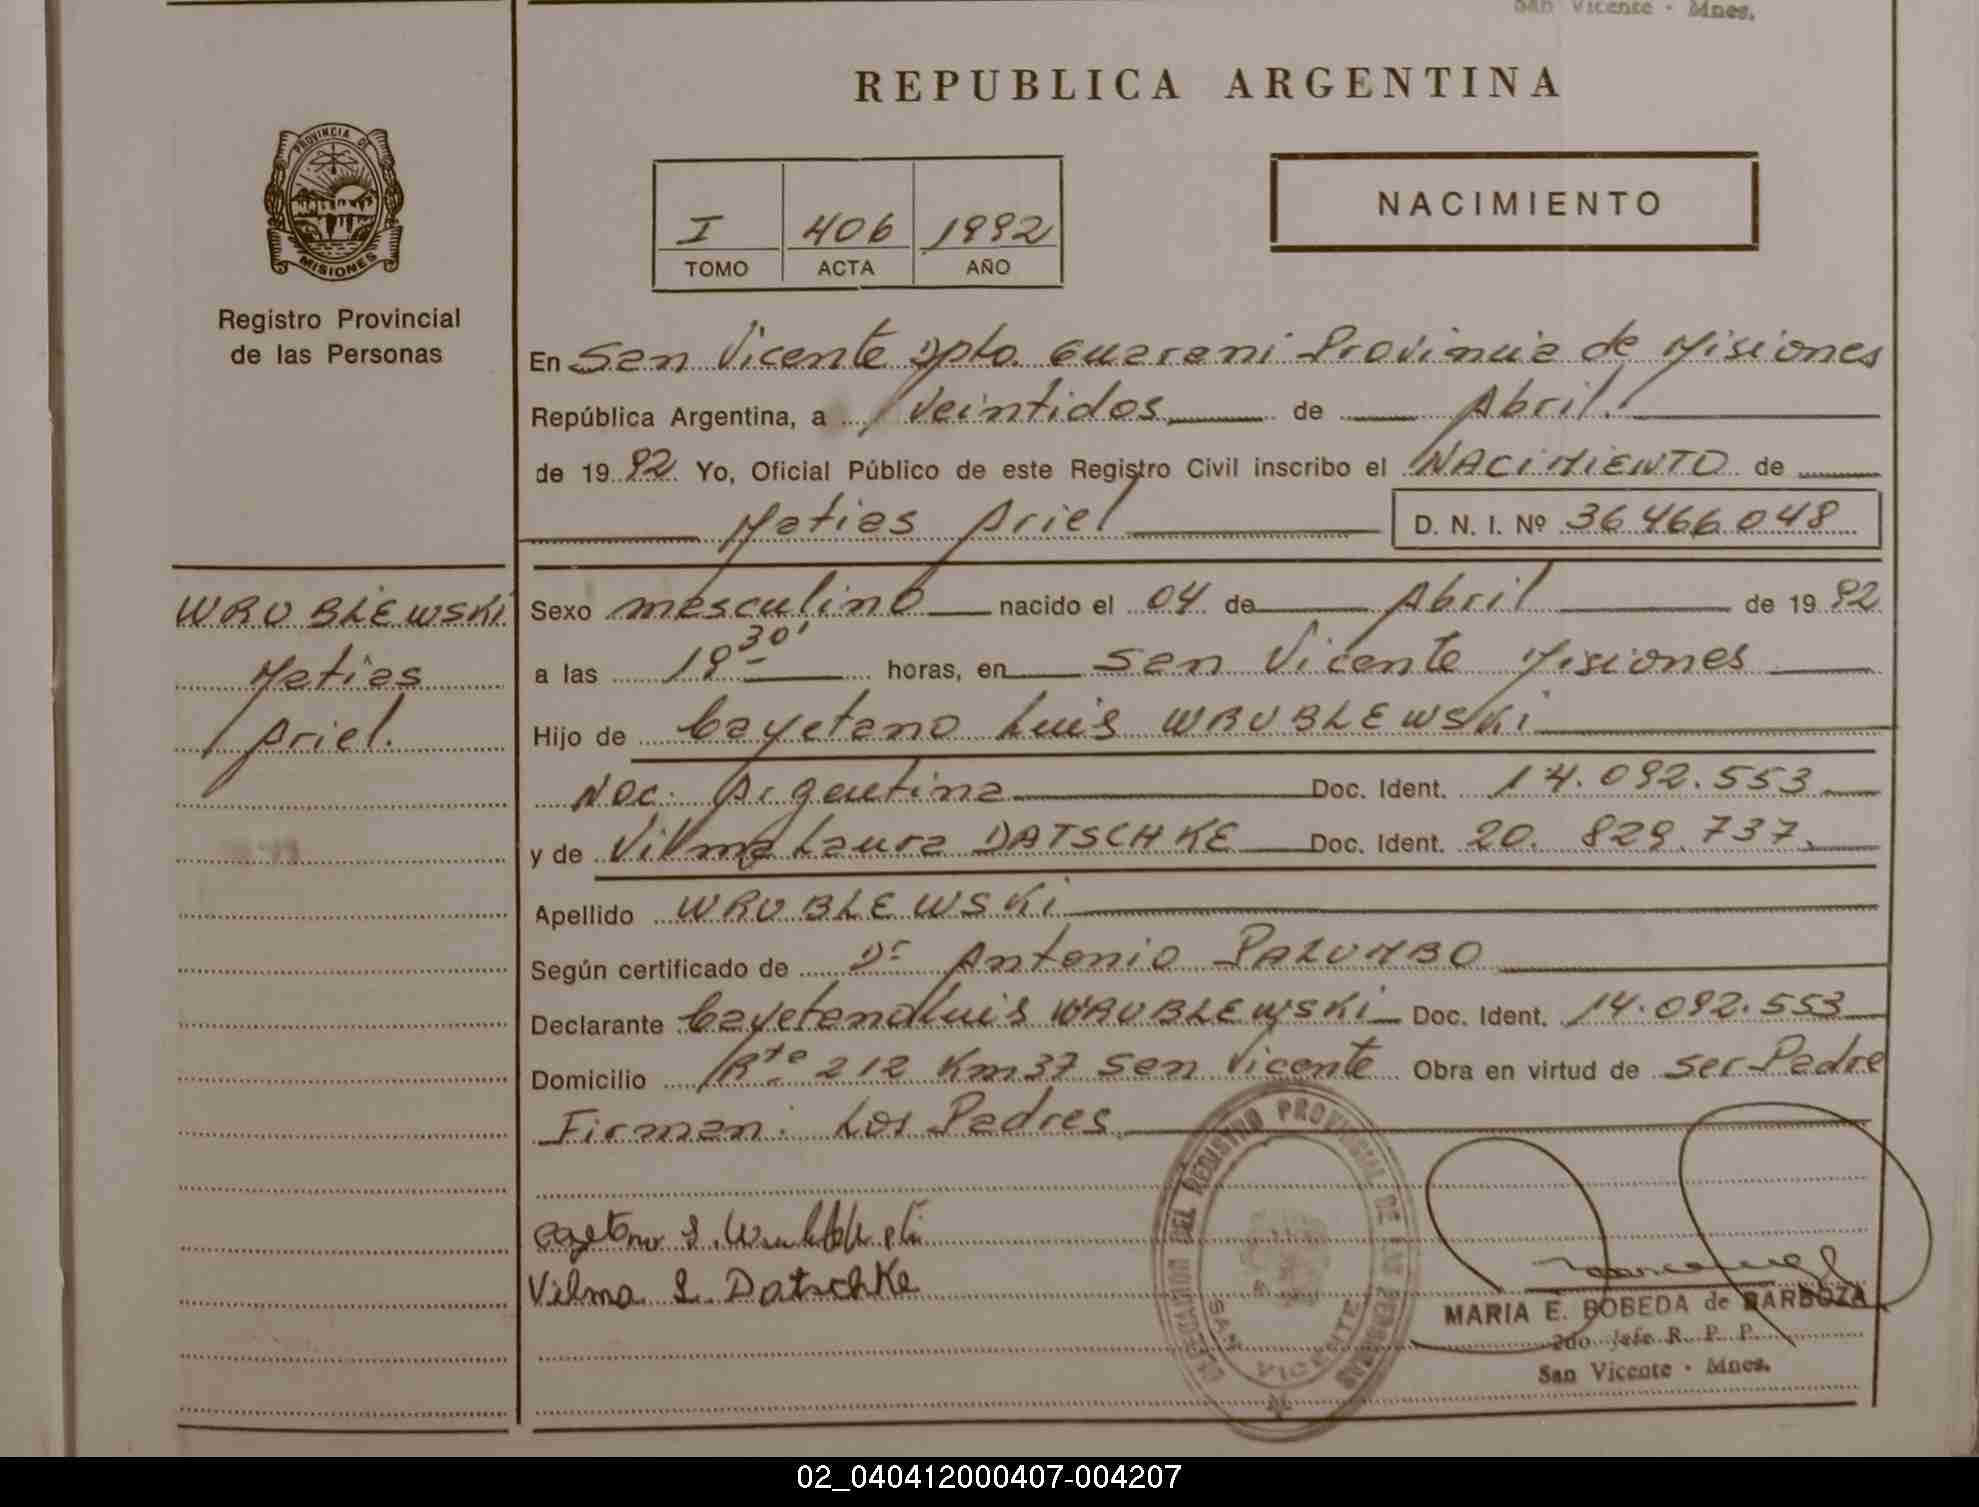 San Vicente - Mnes.
REPUBLICA ARGENTINA
PROVINCIA DE
MISIONES
Registro Provincial
de las Personas
I 406 1992
TOMO ACTA AÑO
NACIMIENTO
En San Vicente Dpto. Guarani Provincia de Misiones
República Argentina, a veintidos de Abril.
de 1992 Yo, Oficial Público de este Registro Civil inscribo el NACIMIENTO de
Matias Ariel D. N. I. Nº 36466048
WRUBLEWSKI
Matias
Ariel.
Sexo masculino nacido el 04 de Abril de 1992
a las 19 30' horas, en San Vicente Misiones
Hijo de Cayetano Luis WRUBLEWSKI
Nac. Argentina Doc. Ident. 14.092.553
y de Vilma Laura DATSCHKE Doc. Ident. 20.829.737.
Apellido WRUBLEWSKI
Según certificado de Dr Antonio PALUMBO
Declarante Cayetano Luis WRUBLEWSKI Doc. Ident. 14.092.553
Domicilio Rta 212 Km 37 San Vicente Obra en virtud de ser Padre
Firman: Los Padres
Vilma L. Datschke
DELEGACION DEL REGISTRO PROVINCIAL DE LAS PERSONAS
SAN VICENTE
MARIA E. BOBEDA de BARBOZA
2do Jefe R. P. P.
San Vicente - Mnes.
02_040412000407-004207